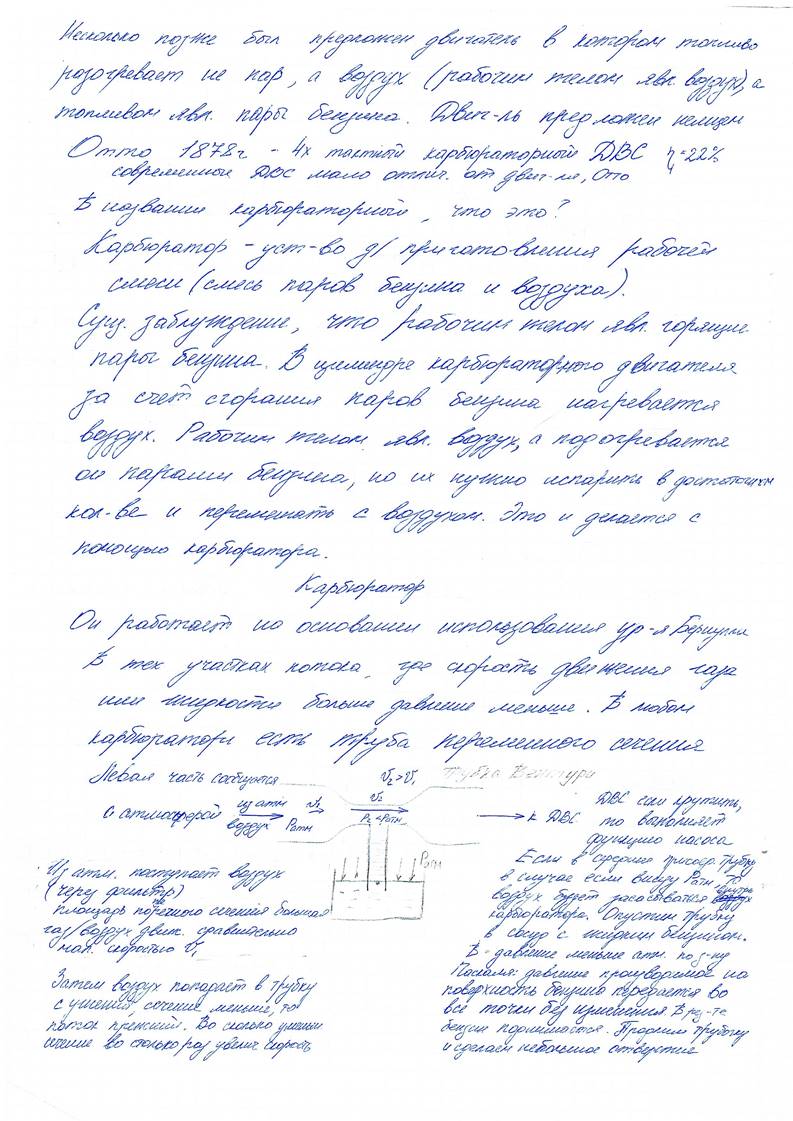 Несколько позже был предложен двигатель в котором топливо
разогревает не пар, а воздух (рабочим телом явл. воздух), а
топливом явл. пары бензина. Двиг-ль предложен немцем
Отто 1878г - 4х тактный карбюраторный ДВС η=22%
современные ДВС мало отлич. от двиг-ля, Отто
В названии карбюраторный, что это?
Карбюратор - уст-во д/ приготовления рабочей
смеси (смесь паров бензина и воздуха).
Сущ. заблуждение, что рабочим телом явл. горящие
пары бензина. В цилиндре карбюраторного двигателя
за счет сгорания паров бензина нагревается
воздух. Рабочим телом явл. воздух, а подогревается
он парами бензина, но их нужно испарить в достаточном
кол-ве и перемешать с воздухом. Это и делается с
помощью карбюратора.
Карбюратор
Он работает на основании использования ур-я Бернулли
В тех участках потока, где скорость движения газа
или жидкости больше давление меньше. В любом
карбюраторе есть труба переменного сечения
Левая часть сообщается
с атмосферой
из атм
воздух
V₁
Pатм
V₂>V₁
V₂
P₂<Pатм
Трубка Вентури
к ДВС
Pатм
ДВС если крутить,
то выполняет
функцию насоса
Из атм. поступает воздух
(через фильтр)
площадь поперечного сечения большая
газ/воздух движ. сравнительно
мал. скоростью V₁
Затем воздух попадает в трубку
с ужений, сечение меньше, то
поток прежний. Во сколько уменьш
сечение во столько раз увелич скорость
Если в середине присоед. трубку
в случае если внизу Pатм то
воздух будет засасываться внутрь
карбюратора. Опустим трубку
в сосуд с жидким бензином.
В давление меньше атм. по з-ну
Паскаля: давление производимое на
поверхность бензина передается во
все точки без изменения. В рез-те
бензин поднимается. Продлим трубочку
и сделаем небольшое отверстие